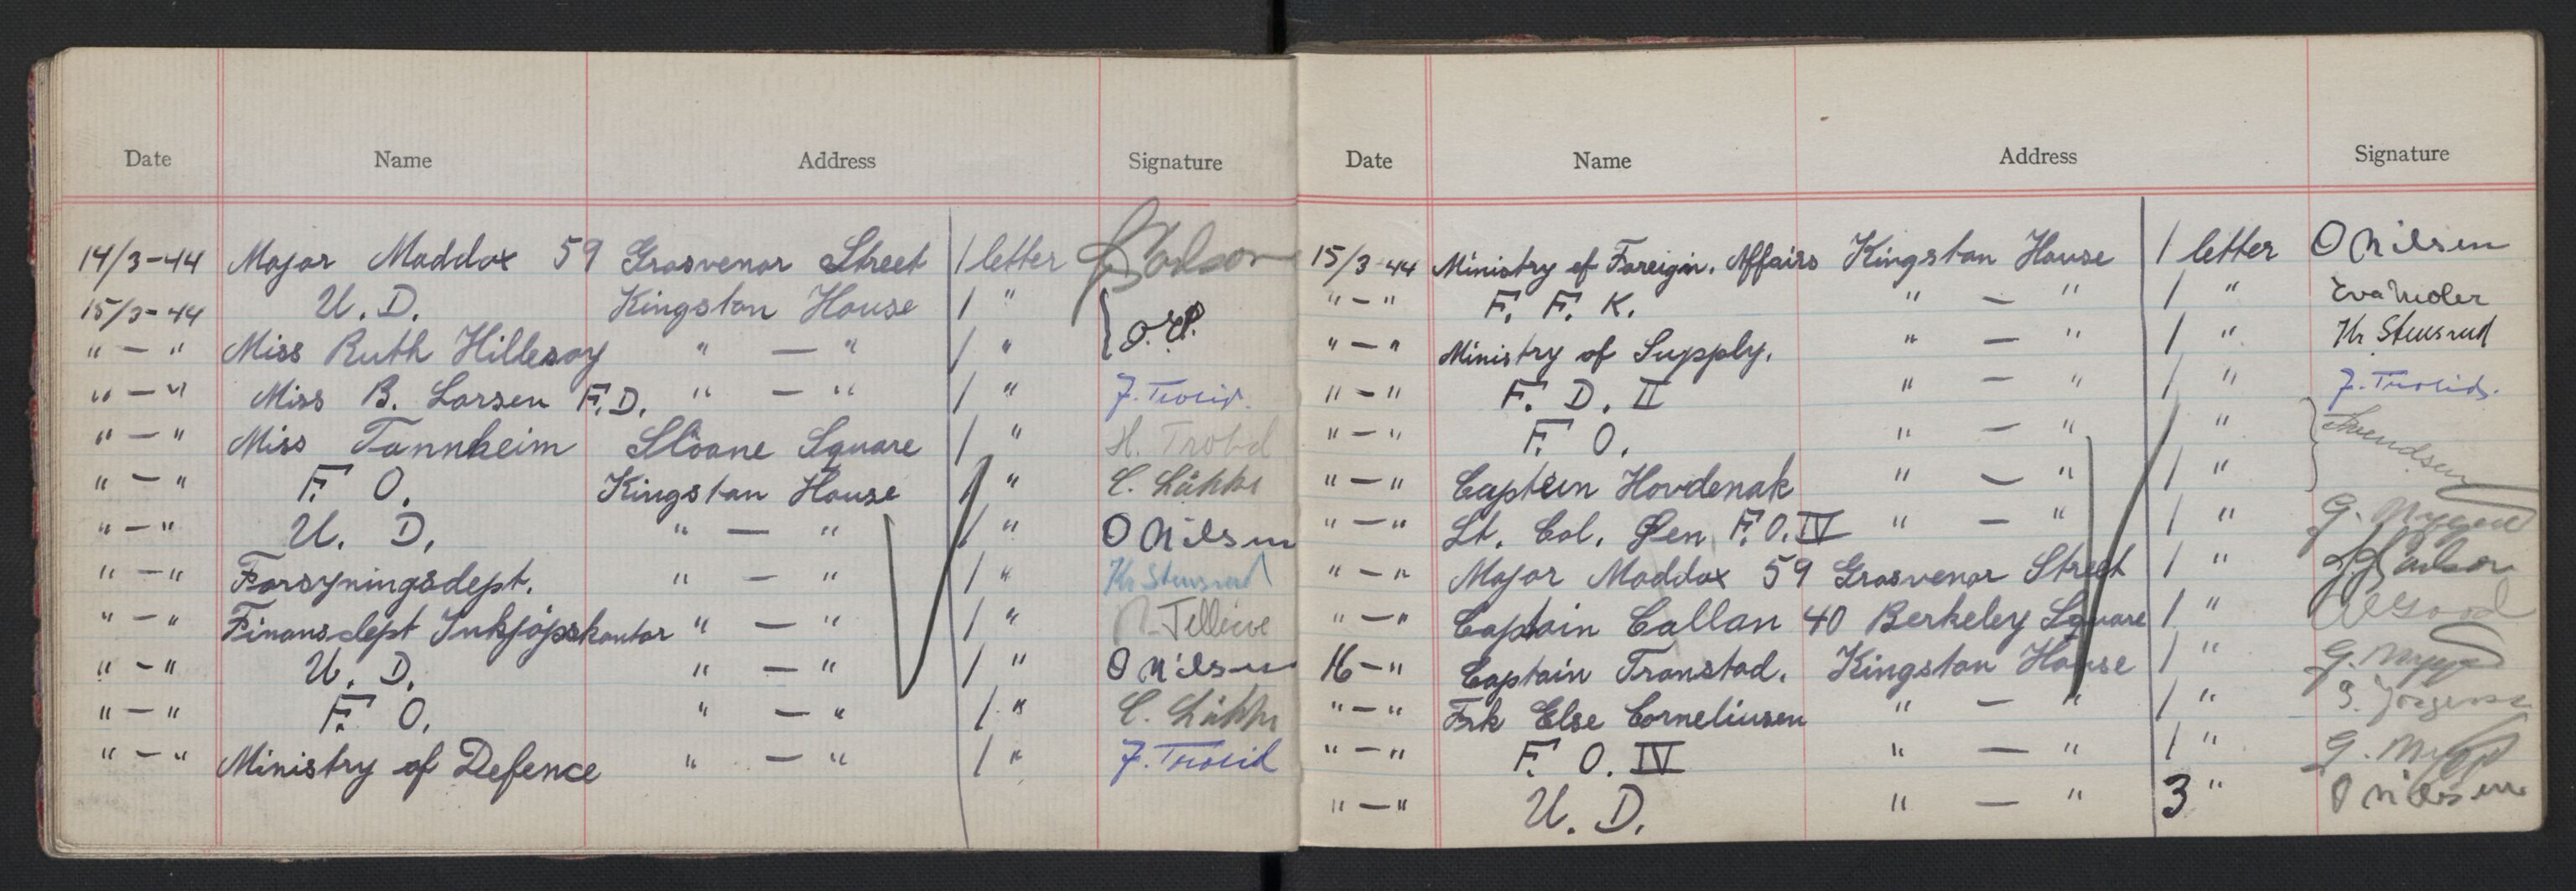 Date Name Address Signature
14/3-44 Major Maddox 59 Grosvenor Street 1 letter
15/3-44 U. D. Kingston House 1 "
" — " Miss Ruth Hillesøy " — " 1 "
" — " Miss B. Larsen F.D. " — " 1 " J. Trosid.
" — " Miss Tannheim Sloane Square 1 "
" — " F. O. Kingston House 1 "
" — " U. D. " — " 1 " O Nilsen
" — " Forsyningsdept. " — " 1 " Kr Stensrud
" — " Finansdept Innkjøpskontor " — " 1 "
" — " U. D. " — " 1 " O Nilsen
" — " F. O. " — " 1 "
" — " Ministry of Defence " — " 1 " J. Trosid
Date Name Address Signature
15/3-44 Ministry of Foreign. Affairs Kingston House 1 letter O Nilsen
" — " F. F. K. " — " 1 " Eva Moler
" — " Ministry of Supply. " — " 1 " Kr Stensrud
" — " F. D. II " — " 1 " J. Trosid.
" — " F. O. " — " 1 "
" — " Captein Hovdenak " — " 1 "
" — " Lt. Col. Øen F.O. IV " — " 1 "
" — " Major Maddox 59 Grosvenor Street 1 "
" — " Captain Callan 40 Berkeley Square 1 "
16 — " Captain Tronstad. Kingston House 1 "
" — " Frk Else Corneliusen " — " 1 "
" — " F. O. IV " — " 1 "
" — " U. D. " — " 3 " O Nilsen